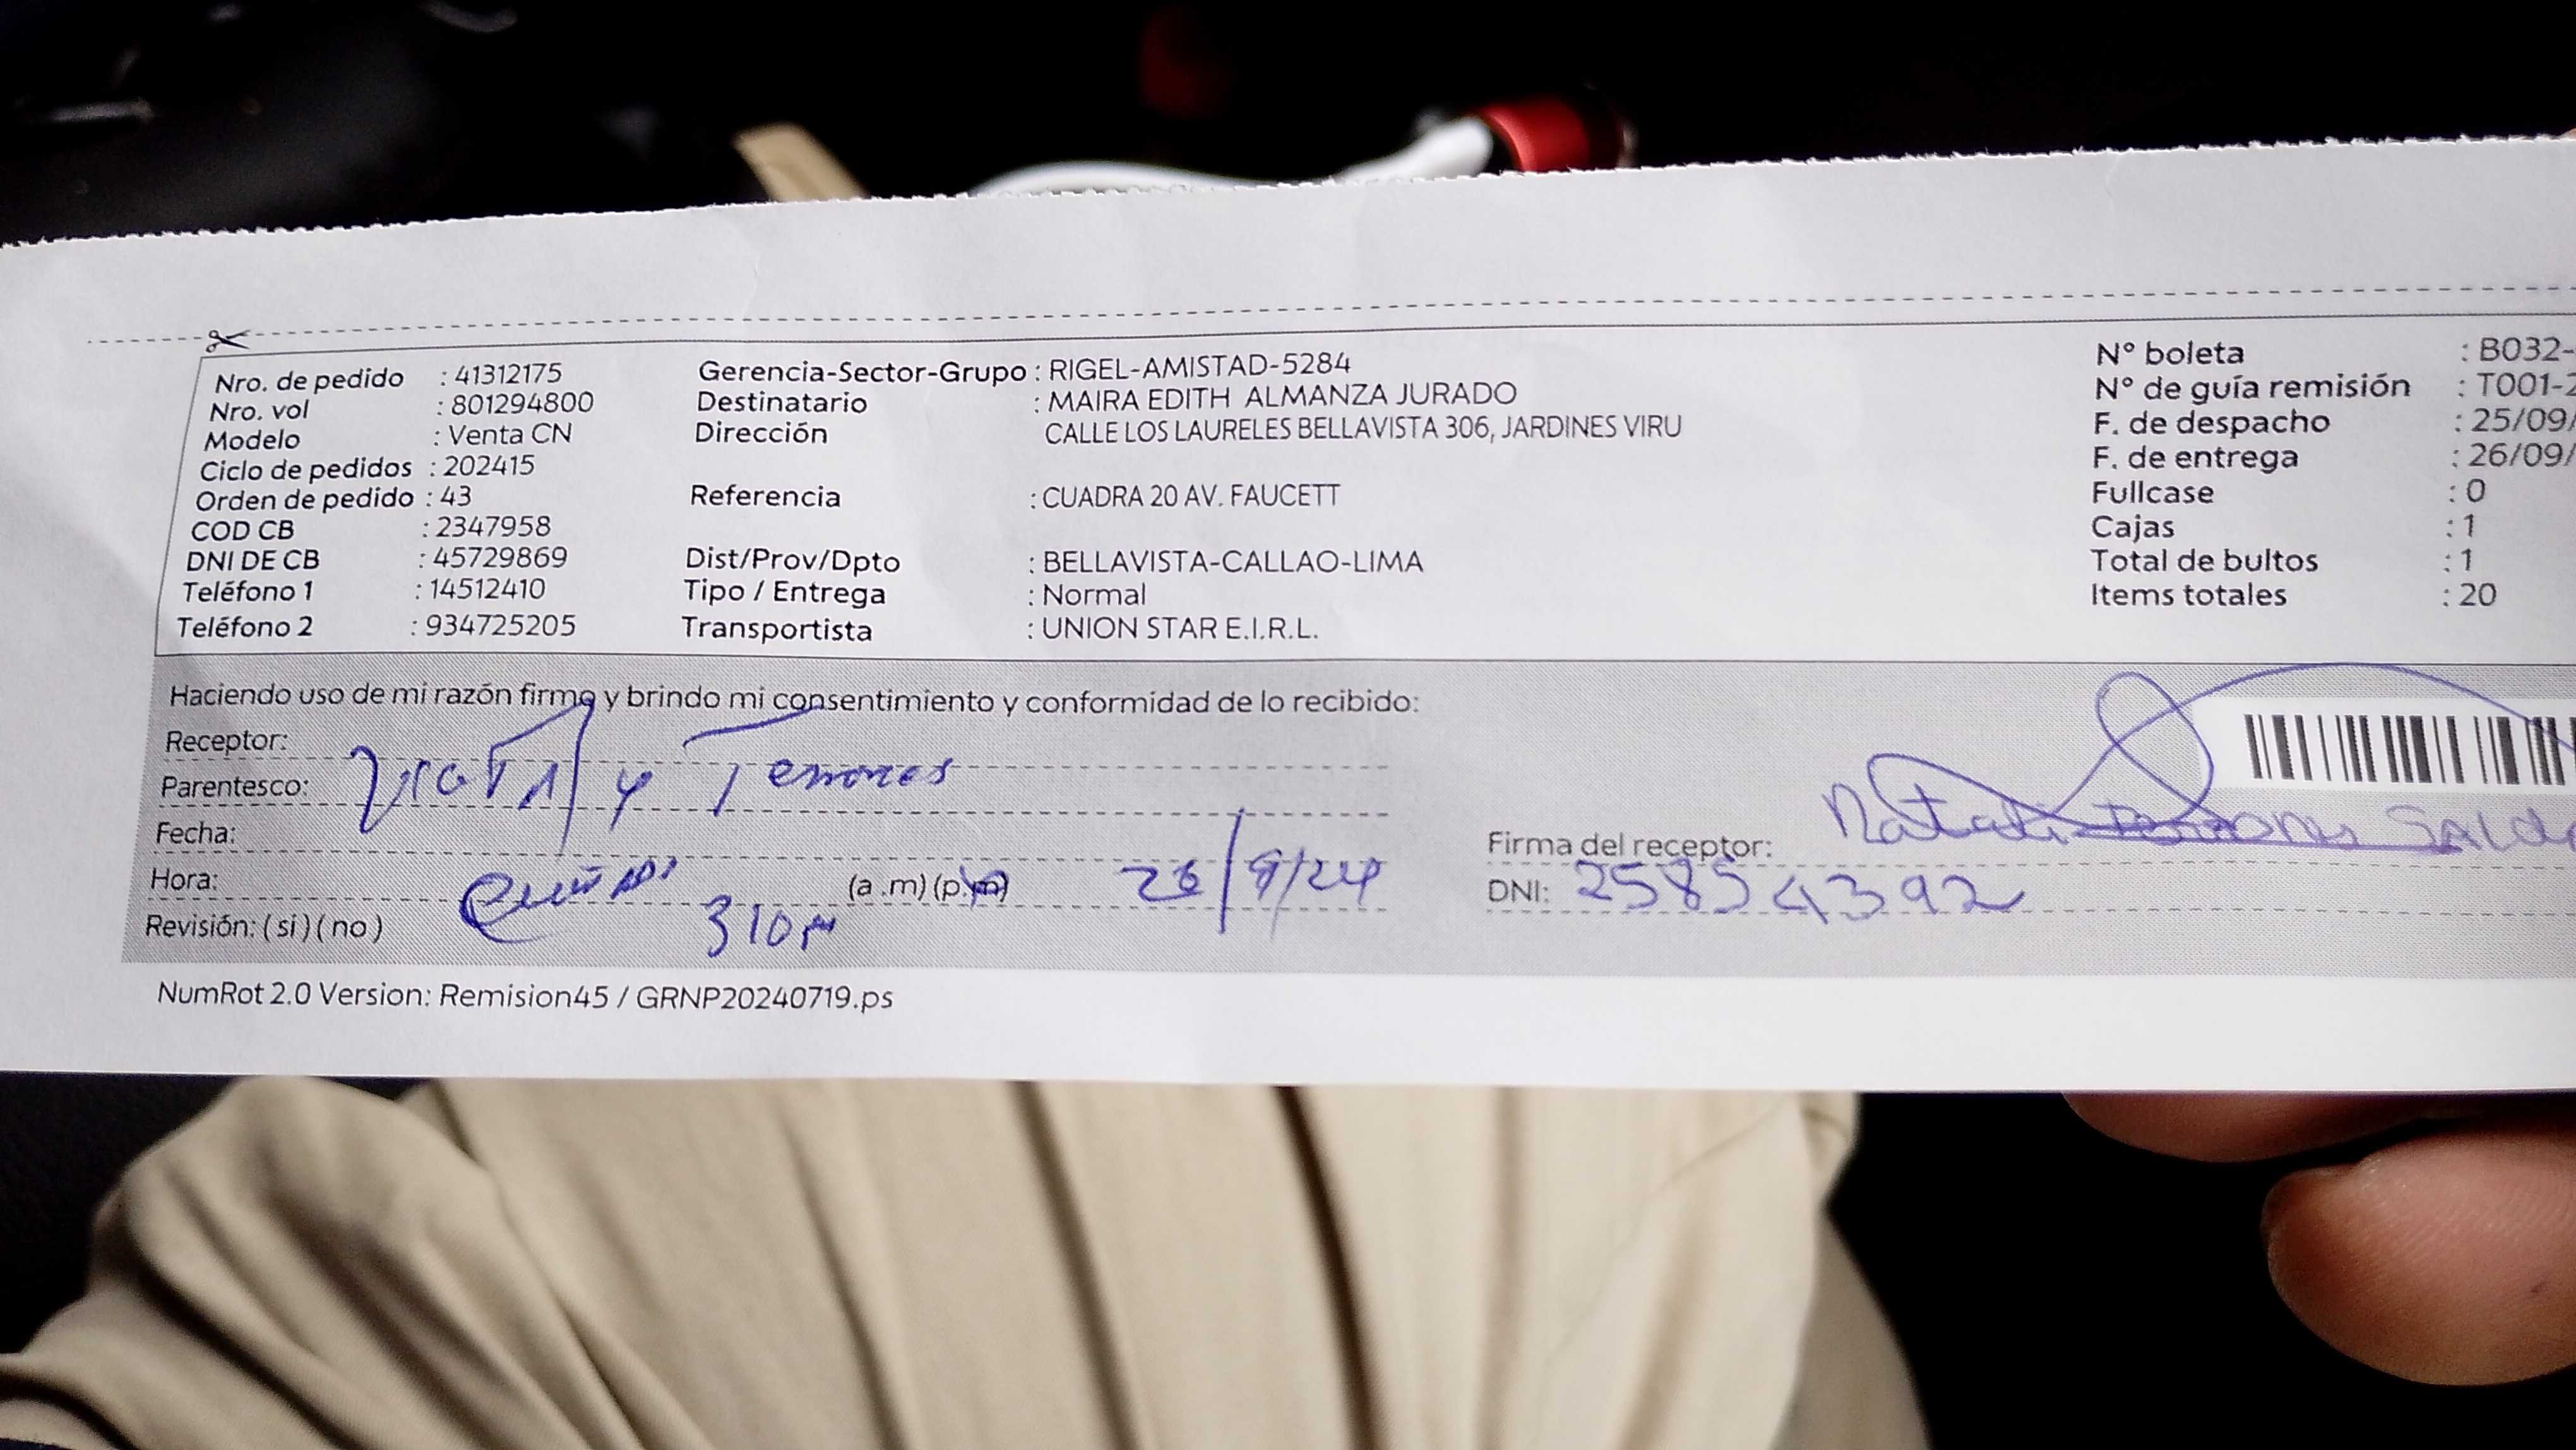 Nro. de pedido : 41312175
Nro. vol : 801294800
Modelo : Venta CN
Ciclo de pedidos : 202415
Orden de pedido : 43
COD CB : 2347958
DNI DE CB : 45729869
Teléfono 1 : 14512410
Teléfono 2 : 934725205
Gerencia-Sector-Grupo : RIGEL-AMISTAD-5284
Destinatario : MAIRA EDITH ALMANZA JURADO
Dirección CALLE LOS LAURELES BELLAVISTA 306, JARDINES VIRU
Referencia : CUADRA 20 AV. FAUCETT
Dist/Prov/Dpto : BELLAVISTA-CALLAO-LIMA
Tipo / Entrega : Normal
Transportista : UNION STAR E.I.R.L.
N° boleta : B032-
N° de guía remisión : T001-2
F. de despacho : 25/09/
F. de entrega : 26/09/
Fullcase : 0
Cajas : 1
Total de bultos : 1
Items totales : 20
Haciendo uso de mi razón firmo y brindo mi consentimiento y conformidad de lo recibido:
Receptor:
Parentesco: y Terrones
Fecha:
Hora: (a .m) (p.m) 26/9/24
Revisión: ( si ) ( no ) 310 P
Firma del receptor: Natali
DNI: 25854392
NumRot 2.0 Version: Remision45 / GRNP20240719.ps